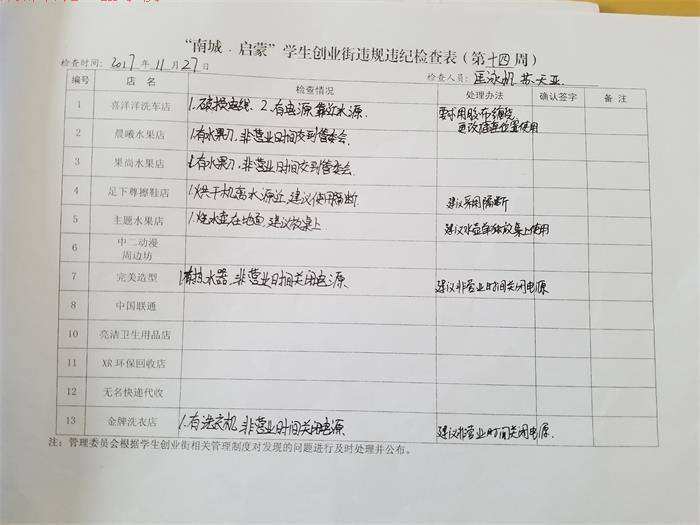 “南城 · 启蒙”学生创业街违规违纪检查表（第十四周）
检查时间：2017年11月27日 检查人员：匡泳机 苏天亚
编号 店 名 检查情况 处理办法 确认签字 备 注
1 喜洋洋洗车店 1.破损电线、2.有电源靠近水源 要求用胶布缠绕
更改插座位置使用
2 晨曦水果店 1.有水果刀,非营业时间交到管委会
3 果尚水果店 1.有水果刀,非营业时间交到管委会
4 足下尊擦鞋店 1.烘干机离水源近,建议使用隔断 建议采用隔断
5 主题水果店 1.烧水壶在地面,建议放桌上 建议水壶单独放桌上使用
6 中二动漫
周边坊
7 完美造型 1.有热水器,非营业时间关闭电源 建议非营业时间关闭电源
8 中国联通
10 亮洁卫生用品店
11 XR环保回收店
12 无名快递代收
13 金牌洗衣店 1.有洗衣机,非营业时间关闭电源 建议非营业时间关闭电源.
注：管理委员会根据学生创业街相关管理制度对发现的问题进行及时处理并公布。